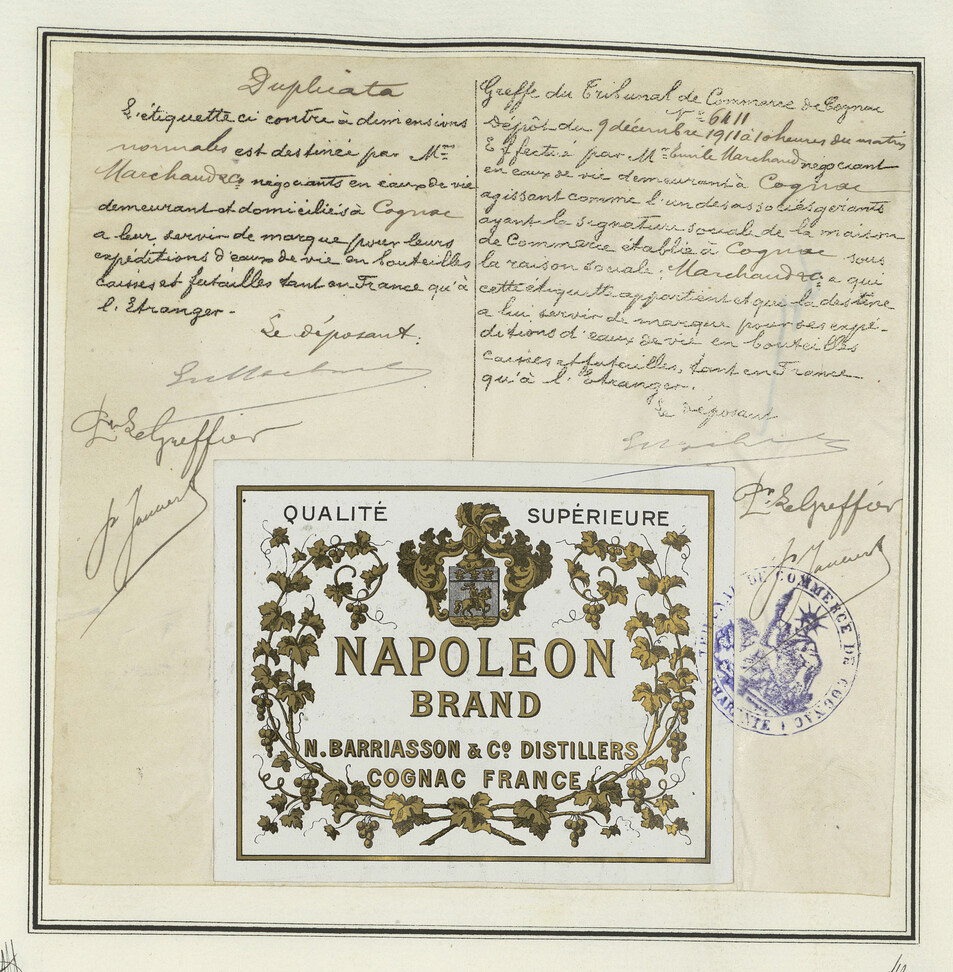 Duplicata
L'étiquette ci contre à dimensions
normales est destinée par Mrs
Marchaud & Co négociants en eaux de vie
demeurant et domiciliés à Cognac
a leur servir de marque pour leurs
expéditions d'eaux de vie en bouteilles
caisses et futailles tant en France qu'à
l'Etranger.
Le déposant.
Pr Le Greffier
Greffe du Tribunal de Commerce de Cognac
No 6411
Dépôt du 9 décembre 1911 à 10 heures du matin
Effectué par Mr Emile Marchaud négociant
en eaux de vie demeurant à Cognac
agissant comme l'un des associés gérants
ayant la signature sociale de la maison
de Commerce établie à Cognac sous
la raison sociale: Marchaud & Co a qui
cette étiquette appartient et que la destine
a lui servir de marque pour ses expé-
ditions d'eaux de vie en bouteilles
caisses et futailles, tant en France
qu'à l'Etranger.
Le déposant
Pr Le Greffier
QUALITÉ SUPÉRIEURE
NAPOLEON
BRAND
N. BARRIASSON & Co DISTILLERS
COGNAC FRANCE
DE COMMERCE DE COGNAC